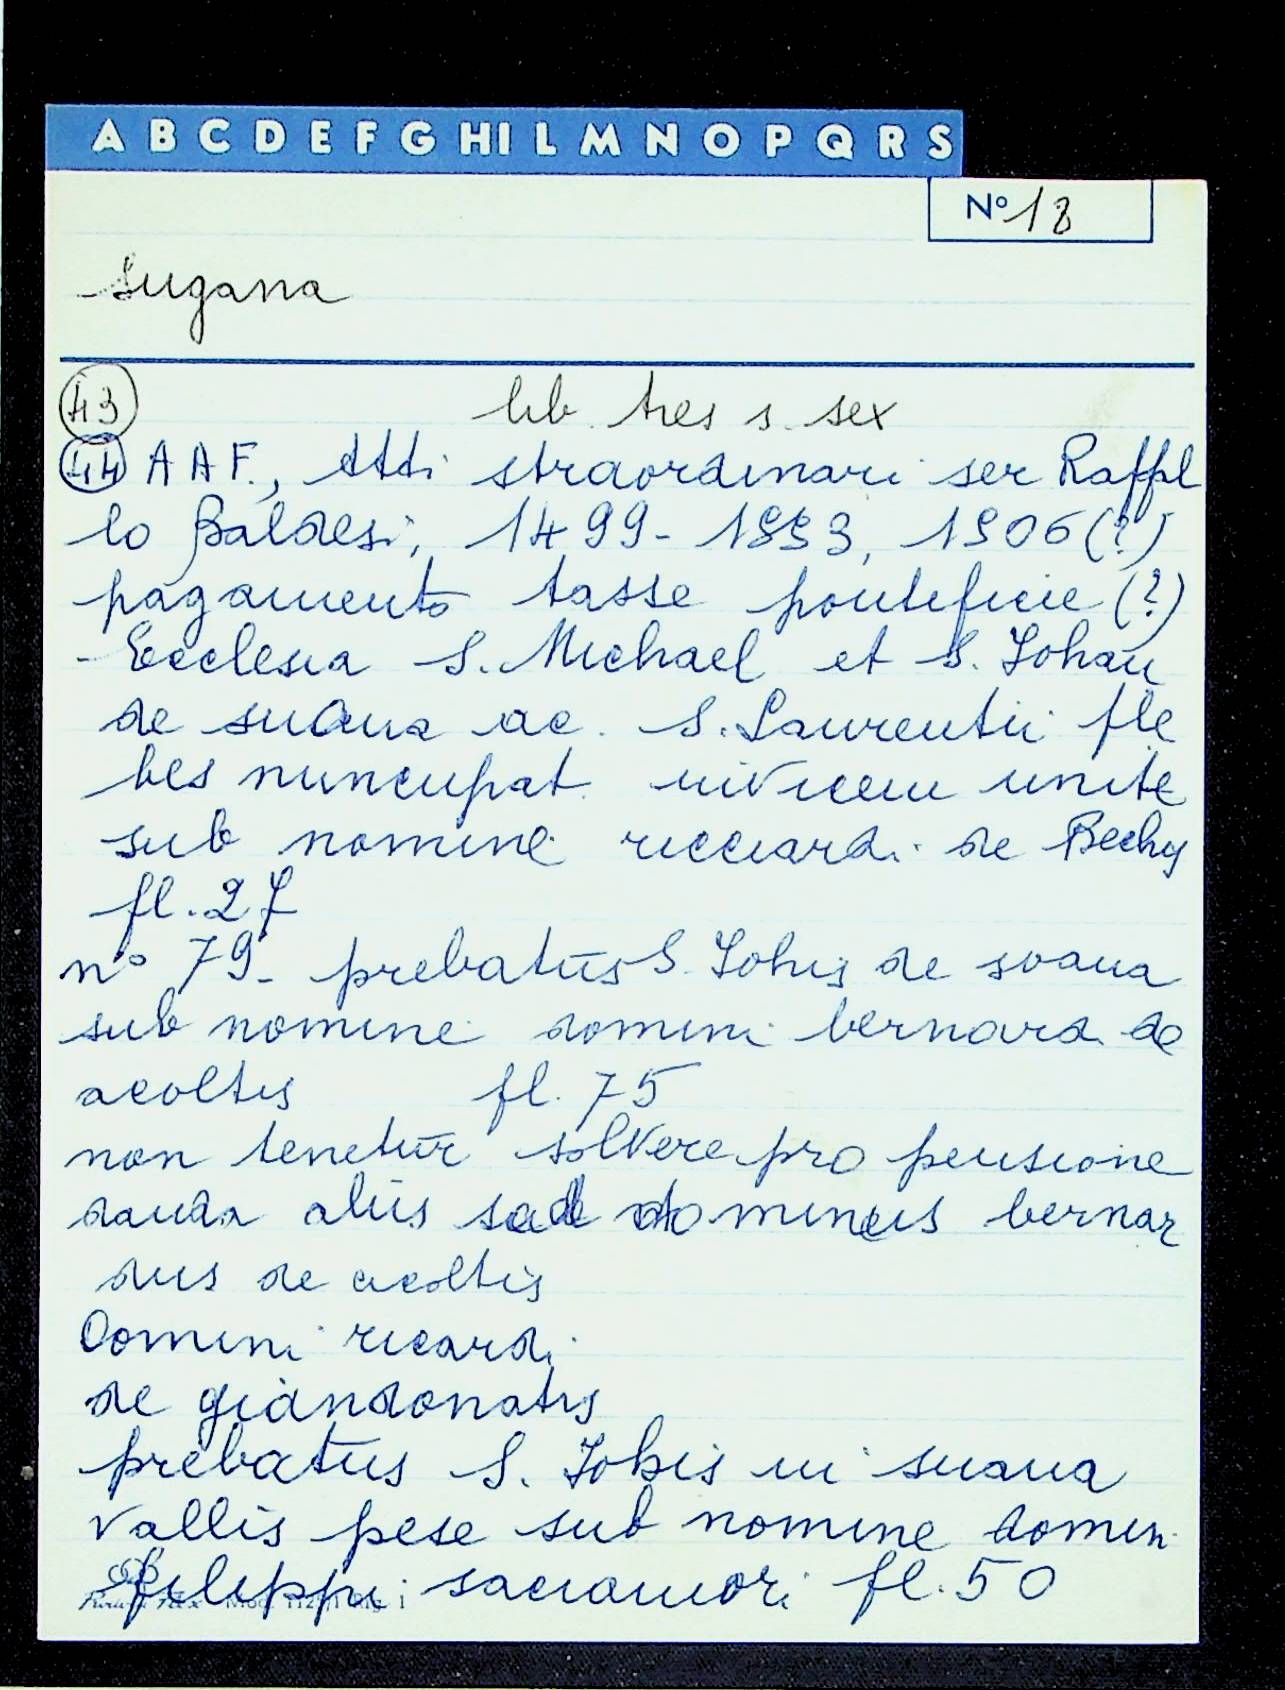 A B C D E F G HI L M N O P Q R S
Nº 18
sugana
43
lib. tres s. sex
44 A A F., Atti straordinari ser Raffl
lo Baldesi, 1499-1553, 1506(?)
pagamento tasse pontificie (?)
- Ecclesia S. Michael et S. Johan̄
de suana ac. S. Laurentii ple
bes nuncupat. invicem unite
sub nomine ricciardi de Bechy
fl. 27
nº 79- prebatūs S. Johis de soana
sub nomine domini bernardi de
acoltis fl. 75
non tenetūr solvere pro pensione
danda aliis sed dominus bernar
dus de acoltis
Domini ricardi
de giandonatis
prebatūs S. Johis in suana
vallis pese sub nomine domin
filippi sacramori fl. 50